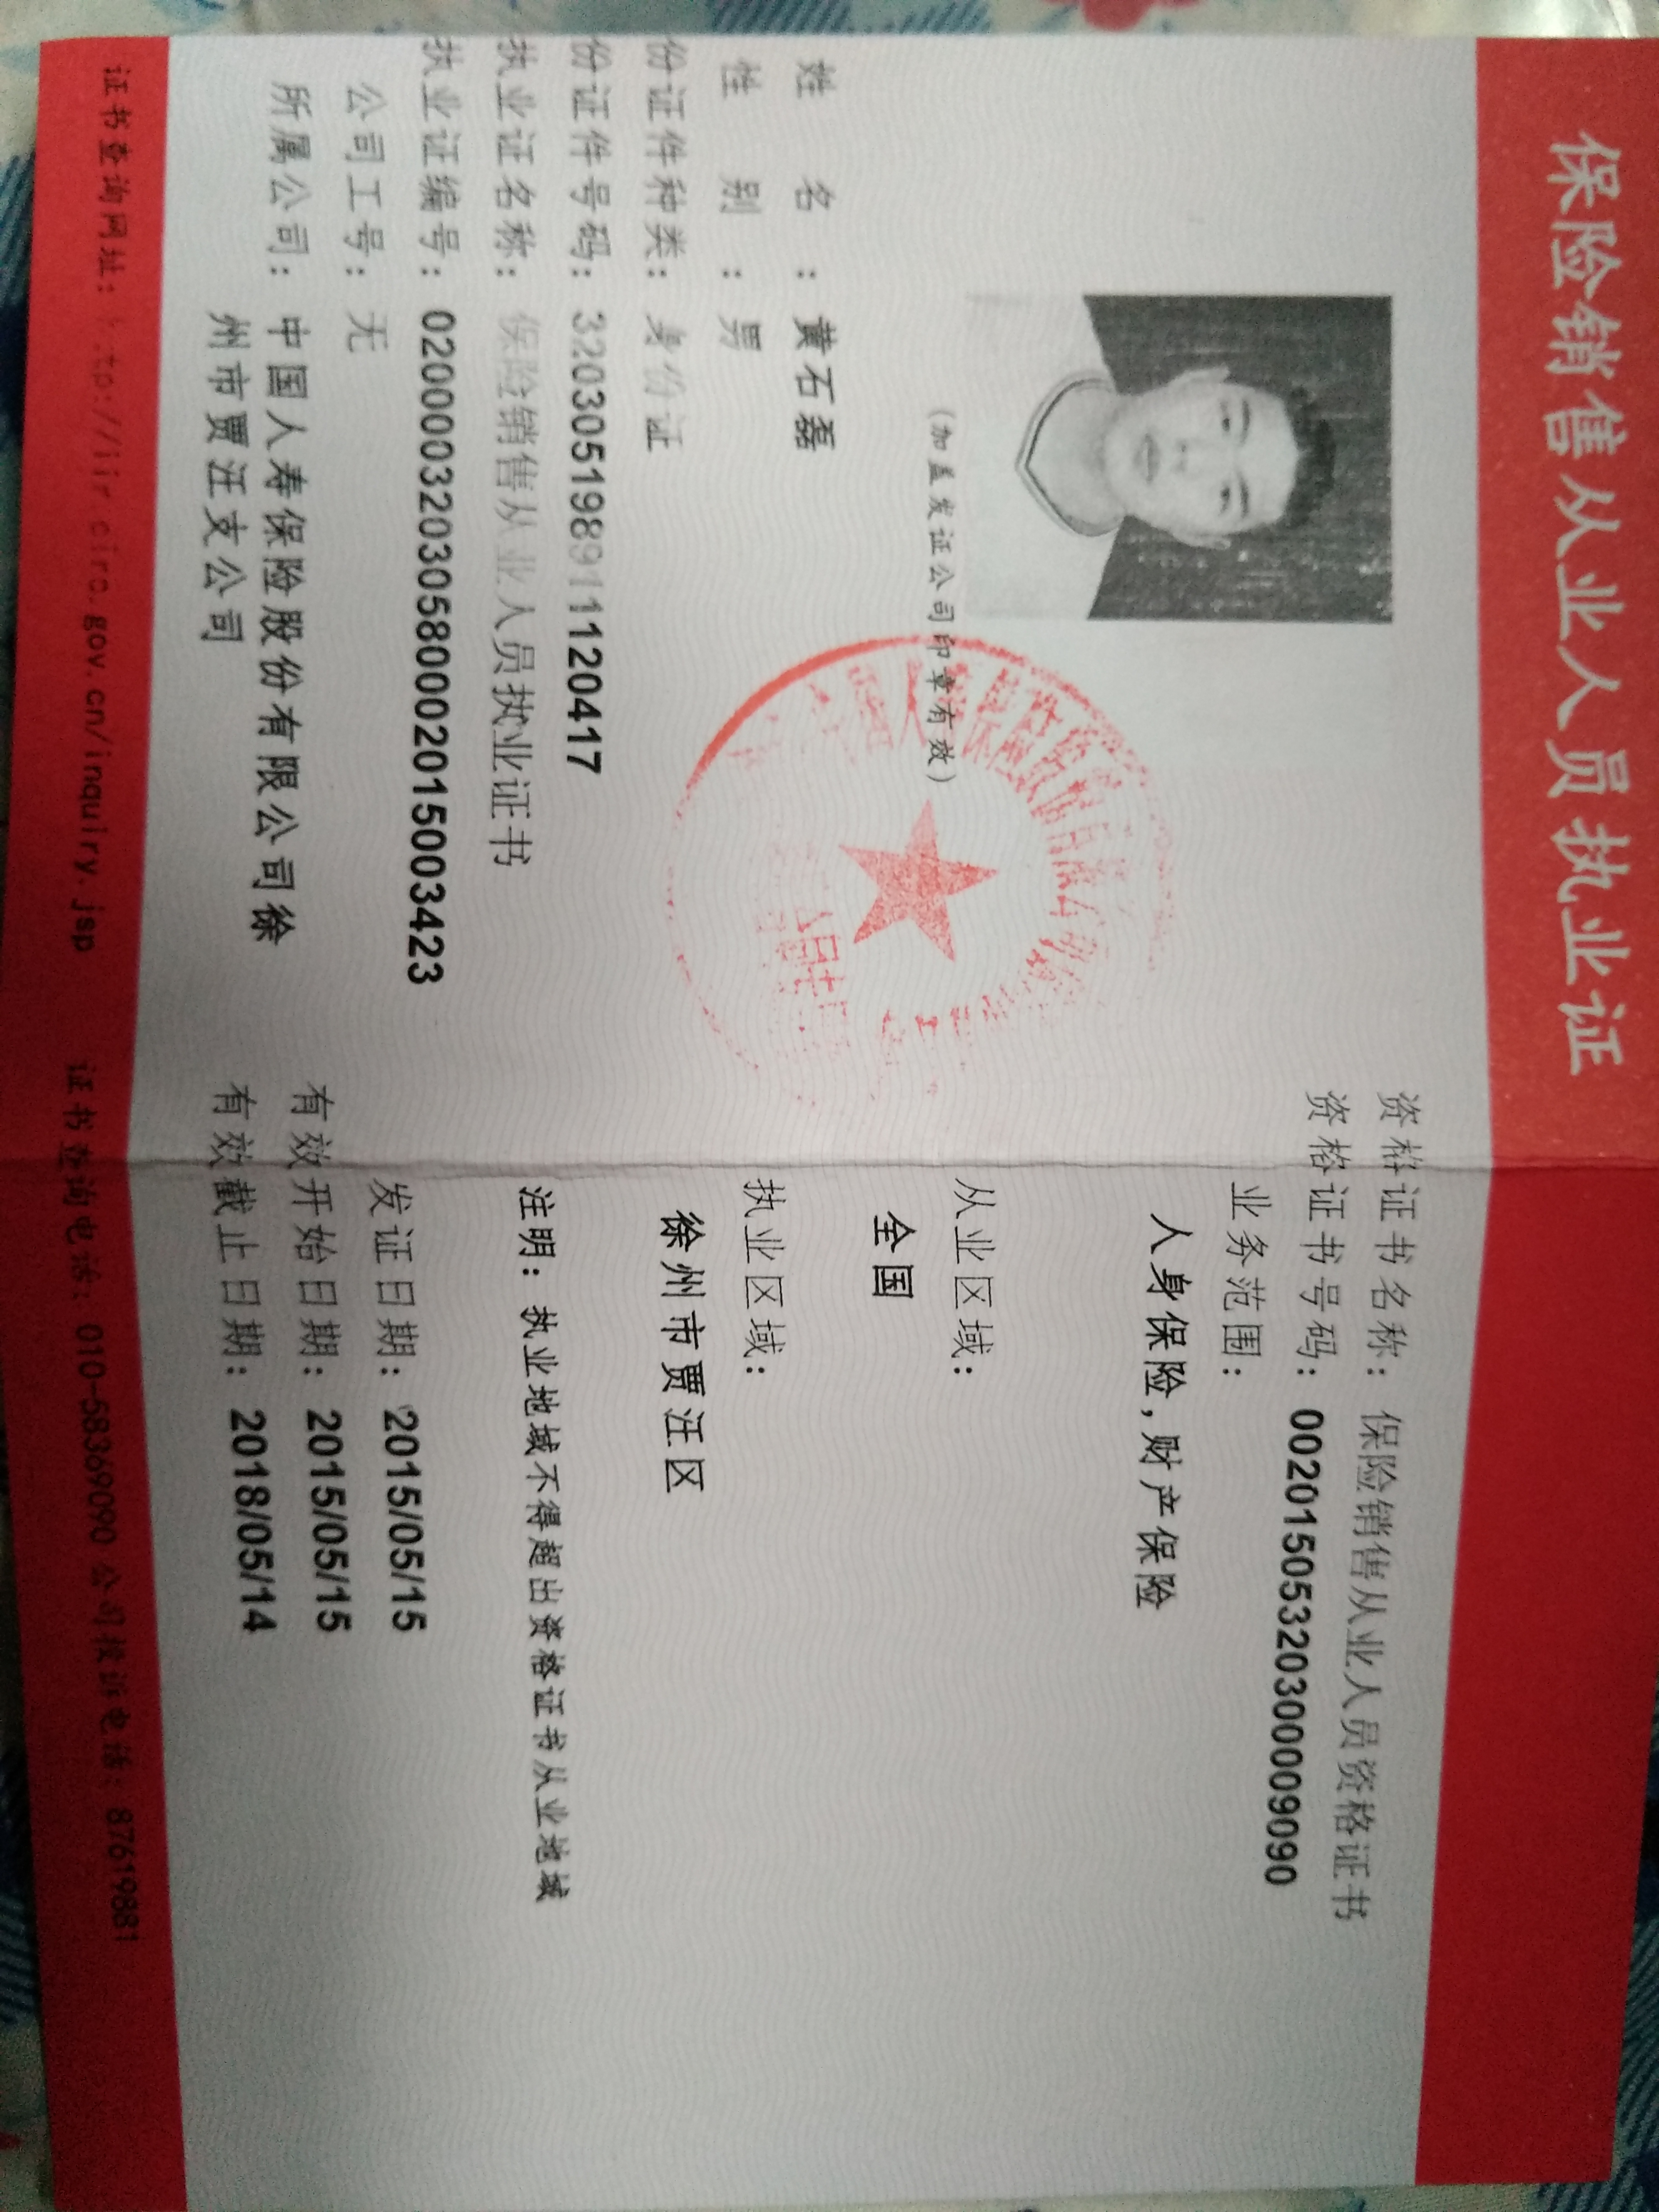 保险销售从业人员执业证
(加盖发证公司印章有效)
姓名：黄石磊
性别：男
份证件种类：身份证
份证件号码：320305198911120417
执业证名称：保险销售从业人员执业证书
执业证编号：02000032030580002015003423
公司工号：无
所属公司：中国人寿保险股份有限公司徐
州市贾汪支公司
资格证书名称：保险销售从业人员资格证书
资格证书号码：00201505320300009090
业务范围：
人身保险,财产保险
从业区域：
全国
执业区域：
徐州市贾汪区
注明：执业地域不得超出资格证书从业地域
发证日期：2015/05/15
有效开始日期：2015/05/15
有效截止日期：2018/05/14
证书查询网址：http://iir.circ.gov.cn/inquiry.jsp
证书查询电话：010-58369090 公司投诉电话：87619881